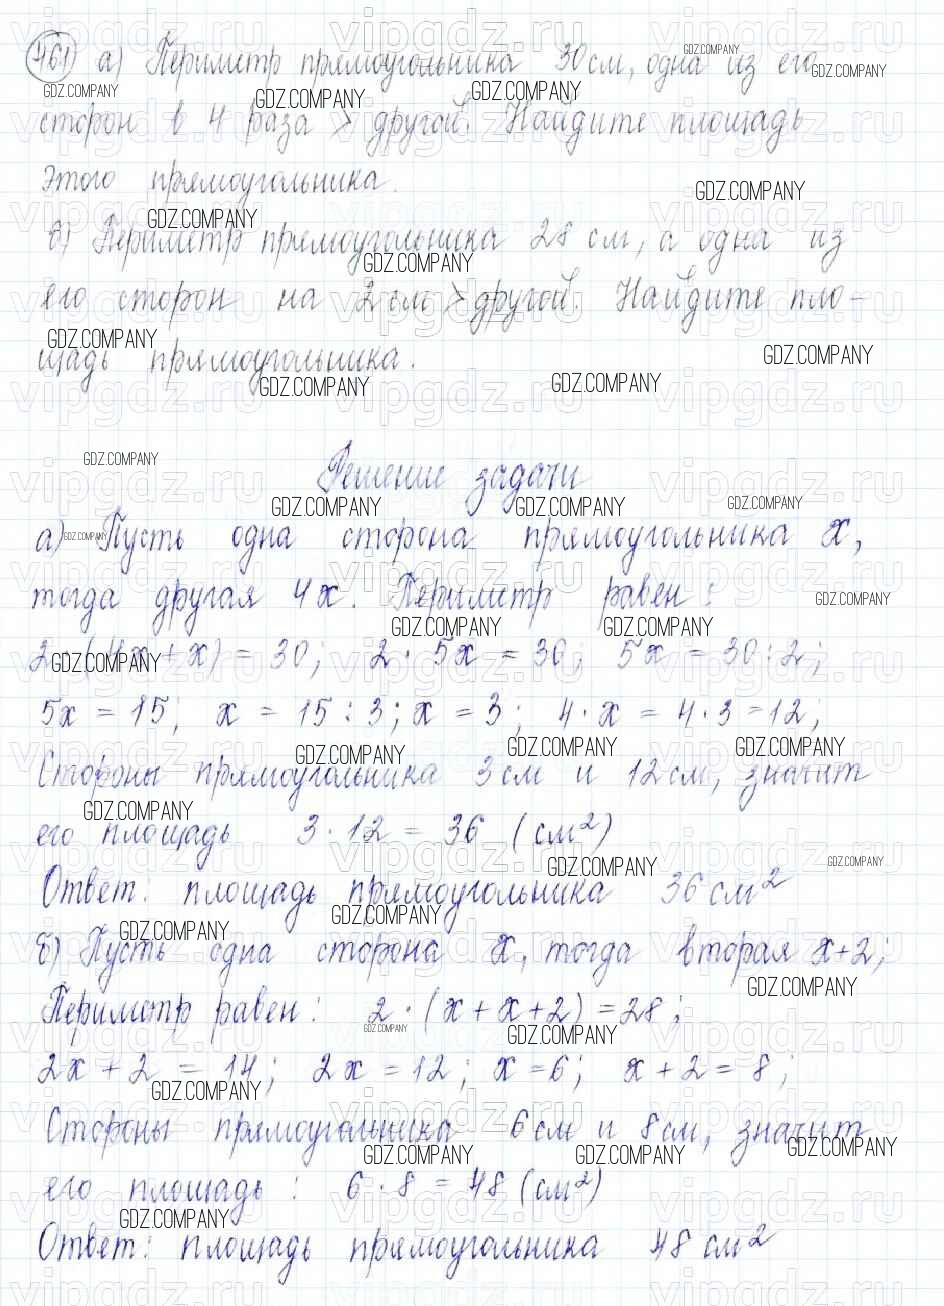 461 а) Периметр прямоугольника 30 см, одна из его
сторон в 4 раза > другой. Найдите площадь
этого прямоугольника.
б) Периметр прямоугольника 28 см, а одна из
его сторон на 2 см > другой. Найдите пло-
щадь прямоугольника.
Решение задачи
а) Пусть одна сторона прямоугольника x,
тогда другая 4x. Периметр равен:
2·(4x+x) = 30; 2·5x = 30; 5x = 30:2;
5x = 15; x = 15:3; x = 3; 4·x = 4·3=12;
Стороны прямоугольника 3см и 12см, значит
его площадь 3·12 = 36 (см²)
Ответ: площадь прямоугольника 36 см²
б) Пусть одна сторона x, тогда вторая x+2;
Периметр равен: 2·(x+x+2)=28;
2x+2=14; 2x=12; x=6; x+2=8;
Стороны прямоугольника 6см и 8см, значит
его площадь: 6·8=48 (см²)
Ответ: площадь прямоугольника 48 см²